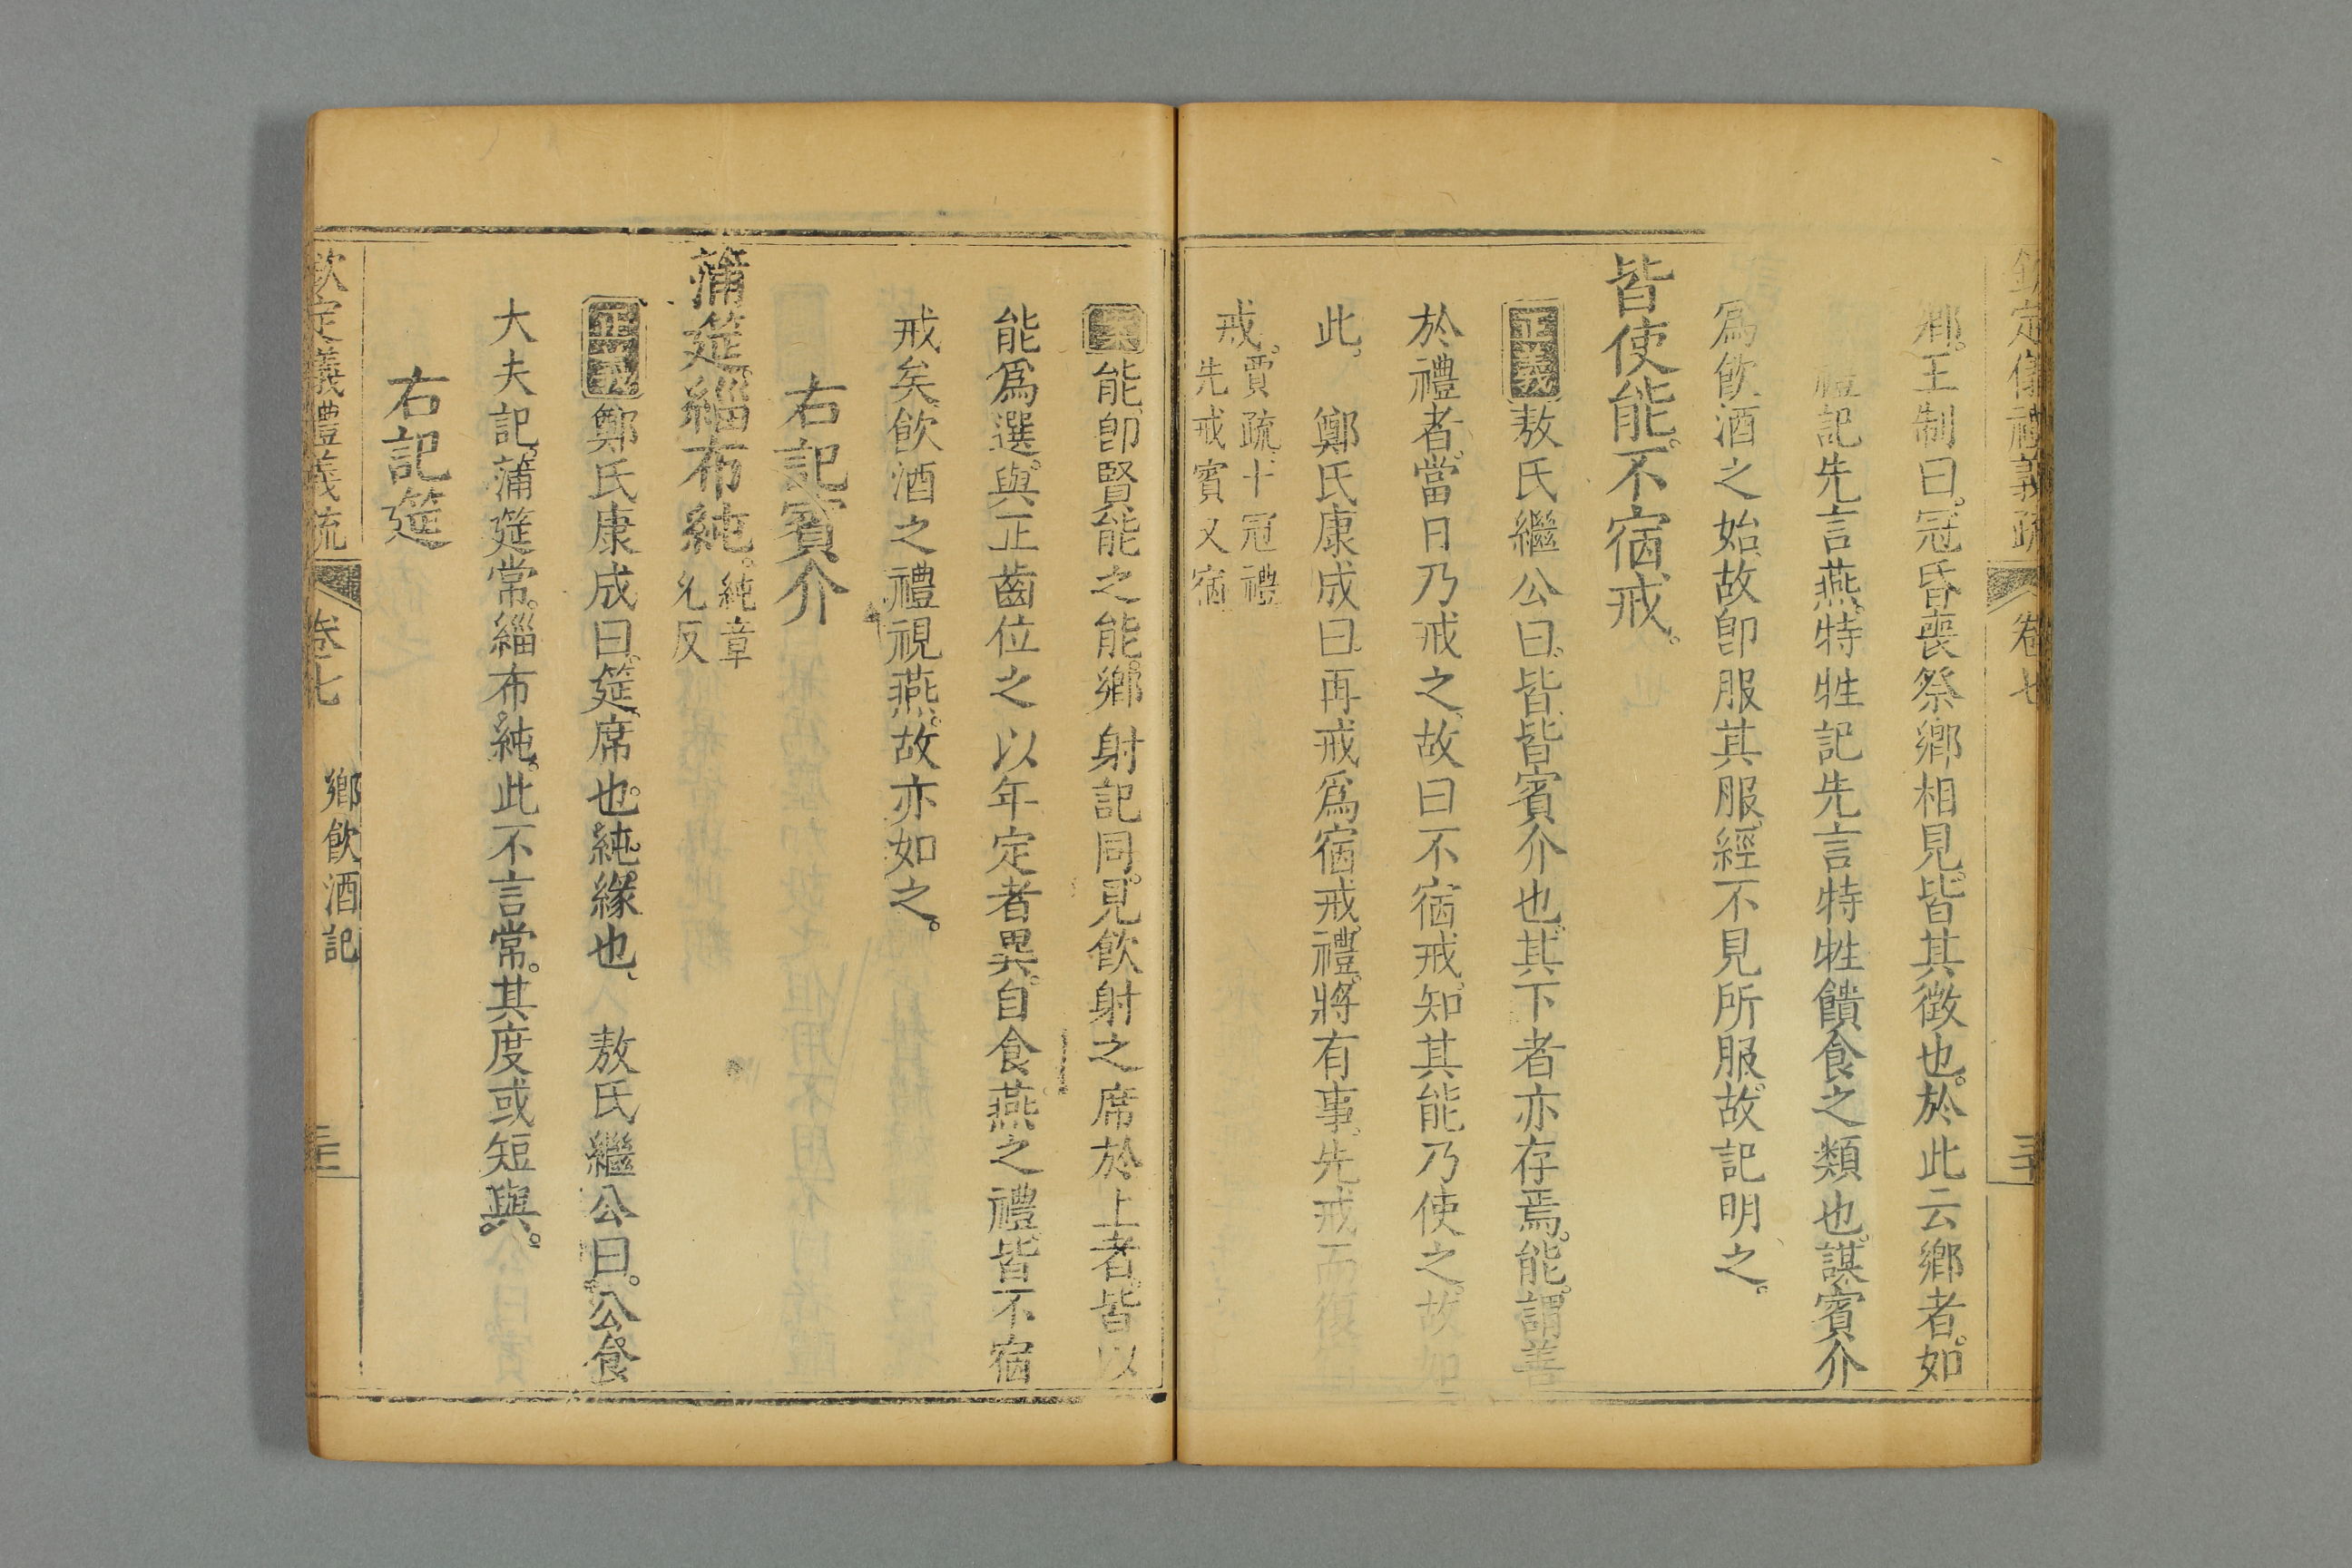 欽定儀禮義疏 卷七
鄉。王制曰。冠昏喪祭鄉相見。皆其徵也。於此云鄉者。如
禮記先言燕。特牲記先言特牲饋食之類也。謀賓介
爲飮酒之始。故卽服其服。經不見所服。故記明之。
皆使能。不宿戒。
正義敖氏繼公曰。皆。皆賓介也。其下者亦存焉。能。謂善
於禮者。當日乃戒之。故曰不宿戒。知其能乃使之。故如
此。 鄭氏康成曰。再戒爲宿戒。禮。將有事。先戒而復宿
戒。賈疏。士冠禮
先戒賓又宿
案能卽賢能之能。鄉射記同。見飮射之席於上者。皆以
能爲選。與正齒位之以年定者異。自食燕之禮。皆不宿
戒矣。飮酒之禮視燕。故亦如之。
右記賓介
蒲筵。緇布純。純章
允反
正義鄭氏康成曰。筵。席也。純。緣也。 敖氏繼公曰。公食
大夫記。蒲筵常。緇布純。此不言常。其度或短與。
右記筵
欽定儀禮義疏 卷七 鄉飮酒記